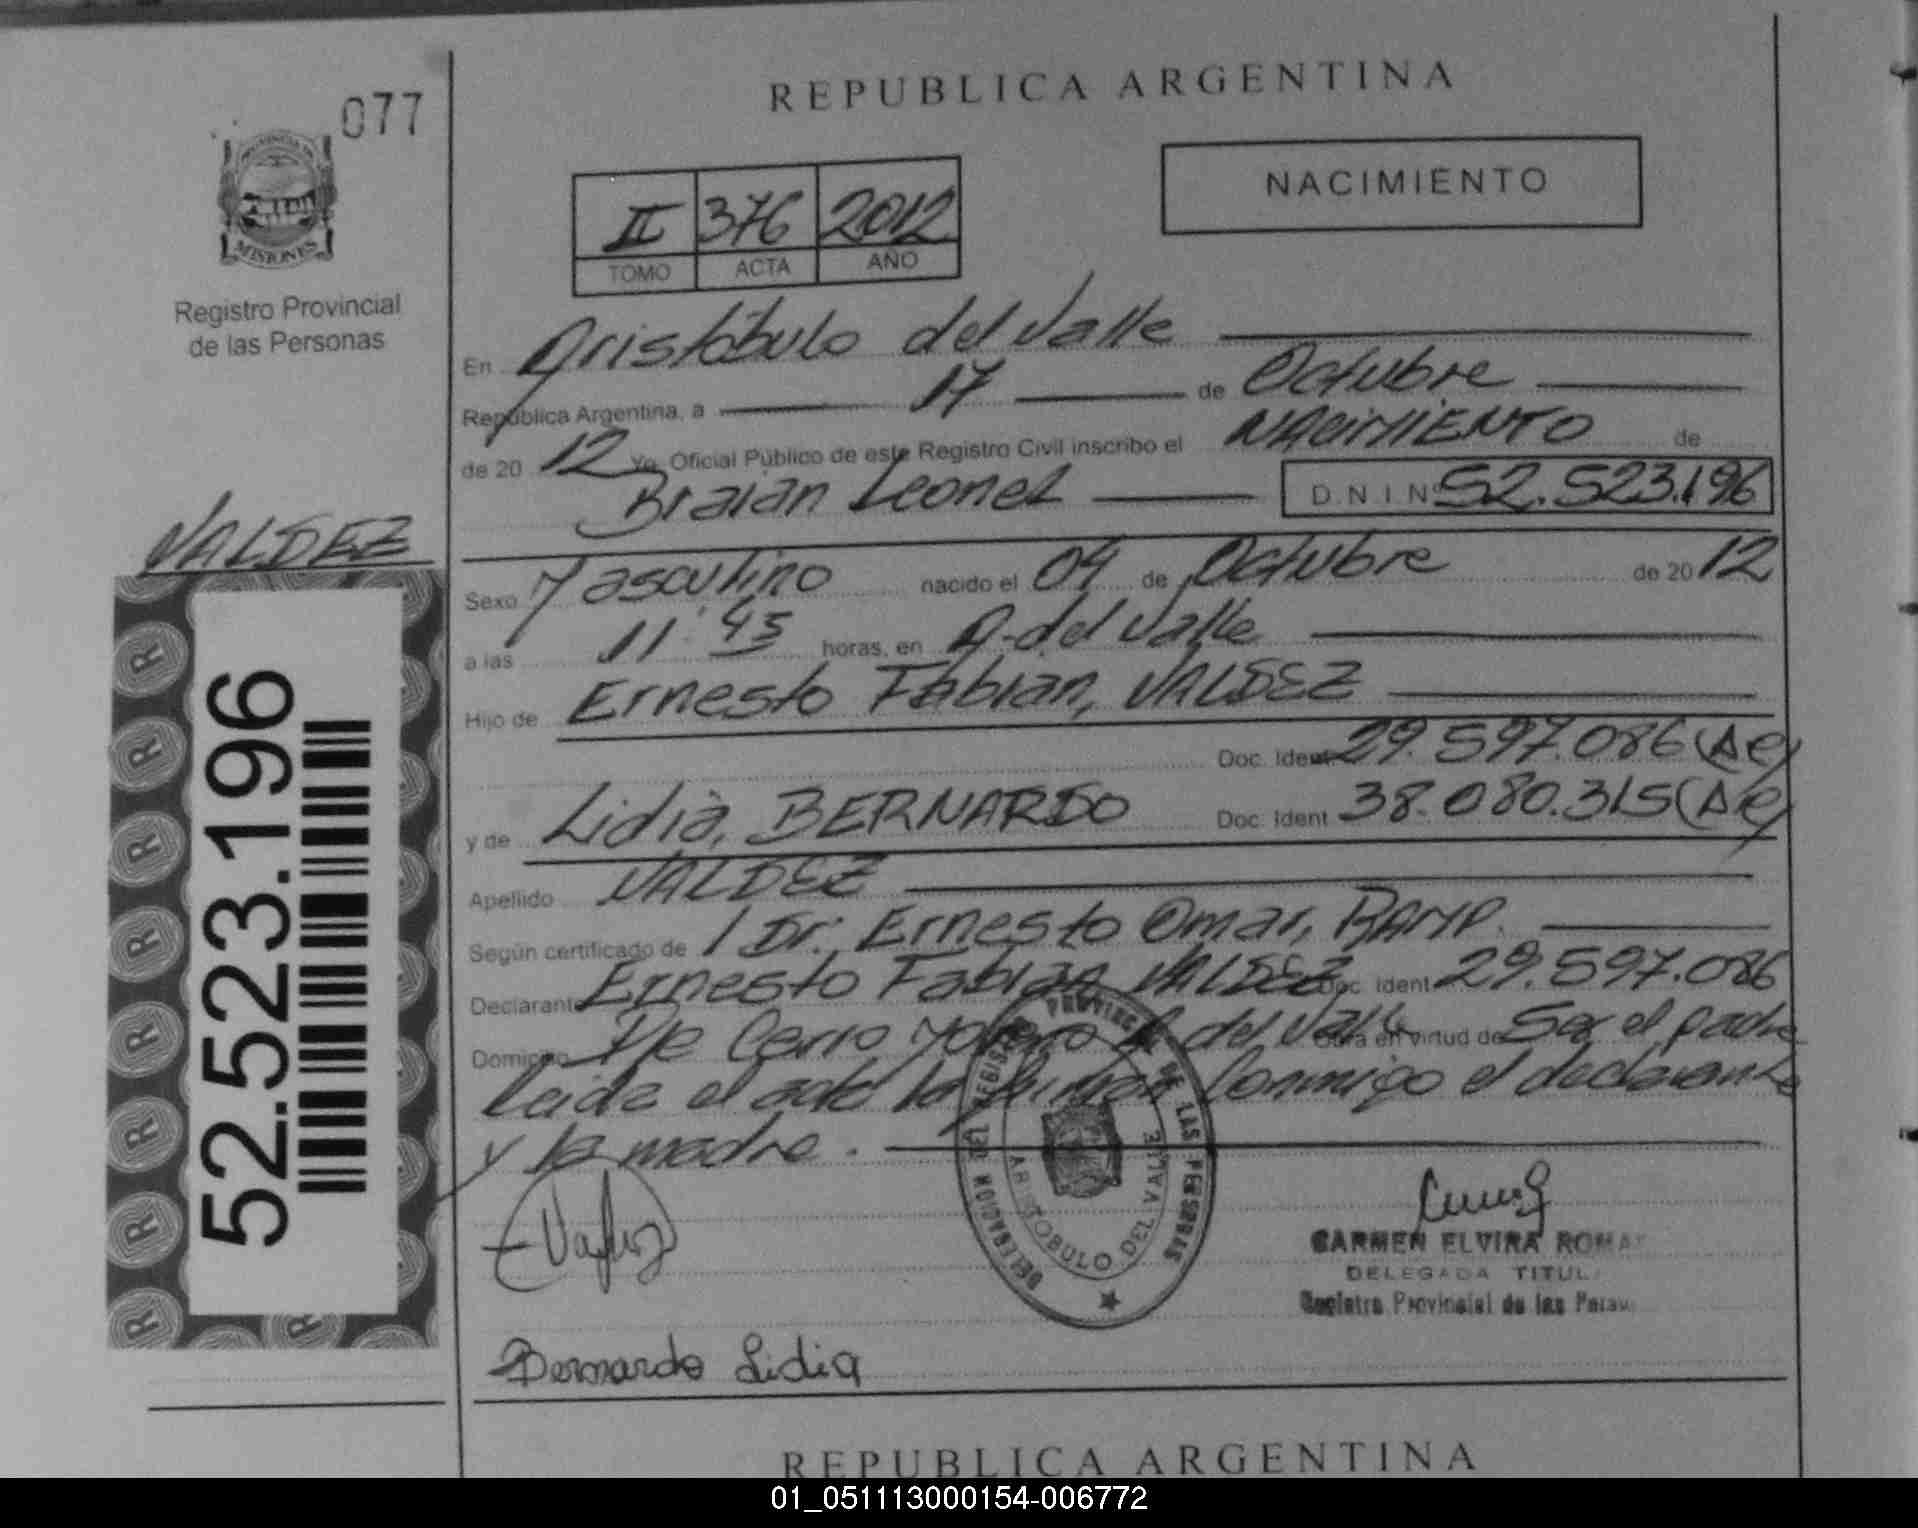 077
REPUBLICA ARGENTINA
NACIMIENTO
II 376 2012
TOMO ACTA AÑO
MISIONES
Registro Provincial
de las Personas
En Aristóbulo del Valle
República Argentina, a 17 de Octubre
de 20 12 Yo, Oficial Público de este Registro Civil inscribo el NACIMIENTO de
Braian Leonel D N I Nº 52.523.196
VALDEZ
Sexo Masculino nacido el 04 de Octubre de 20 12
a las 11:45 horas, en A. del Valle
Hijo de Ernesto Fabian, VALDEZ
Doc. Ident. 29.597.086 (Ar)
y de Lidia, BERNARDO Doc. Ident 38.080.315 (Ar)
Apellido VALDEZ
Según certificado de Dr: Ernesto Omar,
Declarante Ernesto Fabian VALDEZ Doc. Ident 29.597.086
Domicilio Cerro Moreno A. del Valle Obra en virtud de Ser el padre
Leida el acta la firman Conmigo el declarante
y la madre.
52.523.196
R R R R R R R R R
DELEGACION DEL REGISTRO DE LAS PERSONAS
ARISTOBULO DEL VALLE
CARMEN ELVIRA
DELEGADA
Registro Provincial de las
Bernardo Lidia
REPUBLICA ARGENTINA
01_051113000154-006772